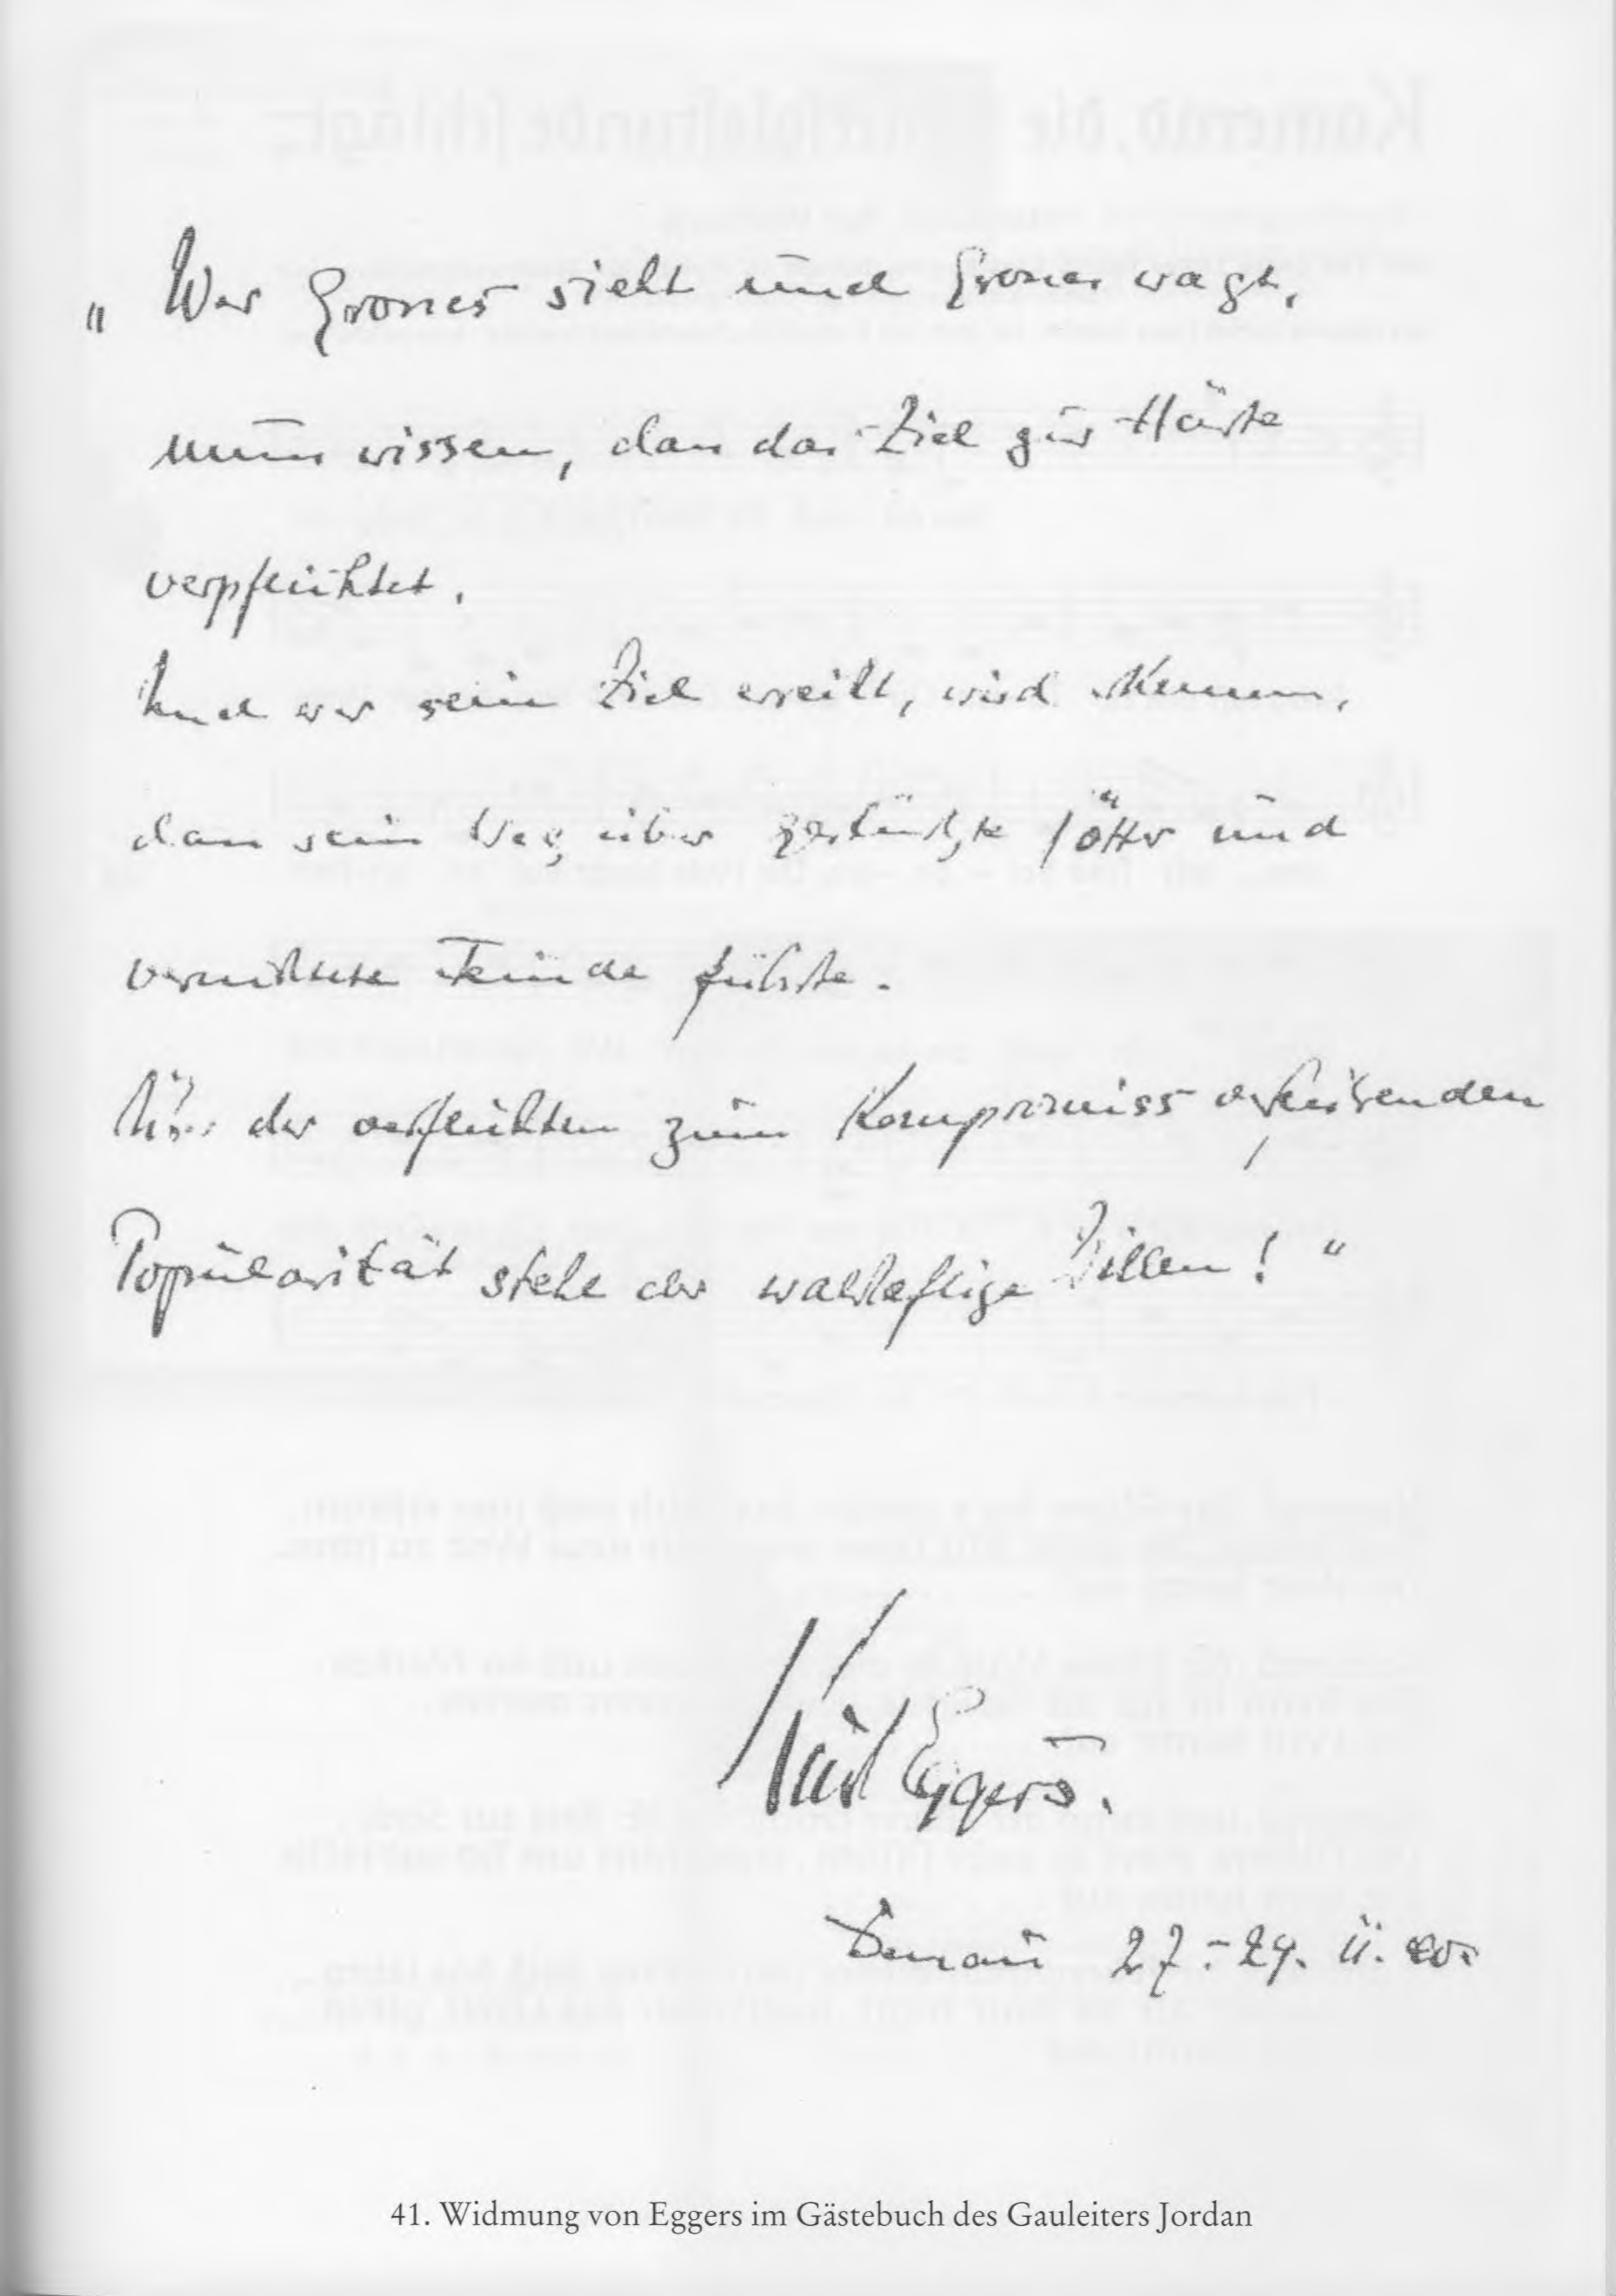 „Wer Grosses sieht und Grosses wagt,
muss wissen, dass das Ziel zur Härte
verpflichtet.
Und wer sein Ziel erreicht, wird erkennen,
dass sein Weg über gestürzte Götter und
vernichtete Feinde führte.
Über der zum Kompromiss
Popularität stehe der wahrhaftige Willen!"
Kurt Eggers.
Dessau 27.-29. 11. 40.
41. Widmung von Eggers im Gästebuch des Gauleiters Jordan